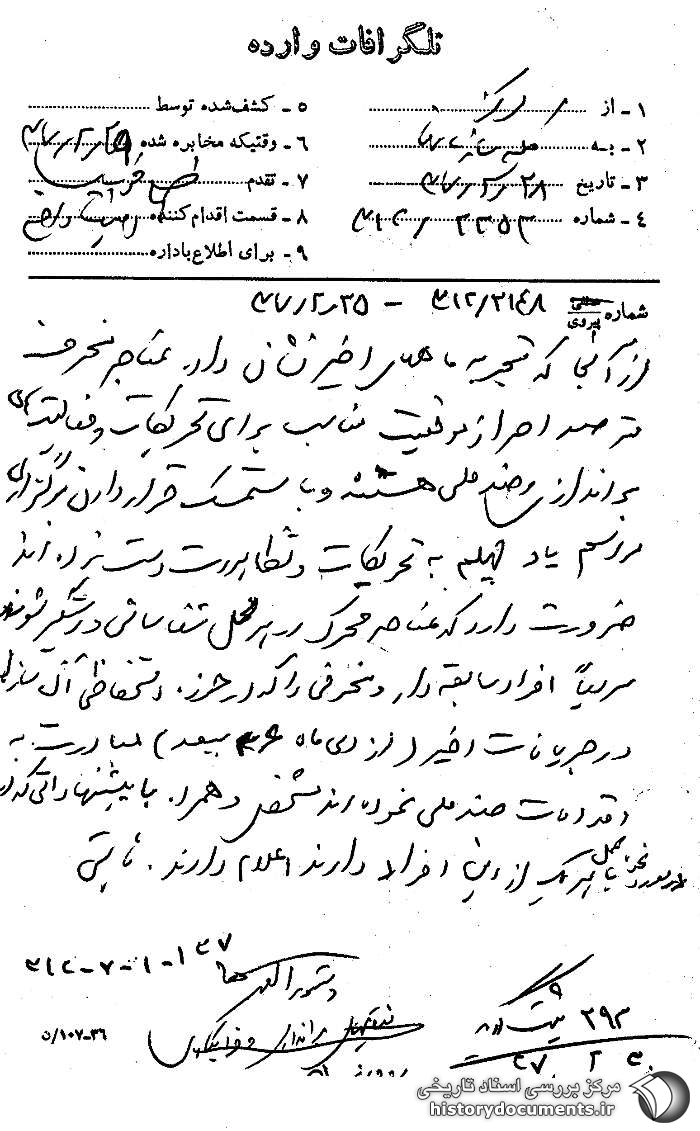 تلگرافات وارده
۱ - از مرکز
۲ - به
۳ - تاریخ ۳۷/۲/۲۸
۴ - شماره ۳۱۲/۲۲۵۳
۵ - کشف‌شده توسط
۶ - وقتیکه مخابره شده
۷ - تقدم
۸ - قسمت اقدام‌کننده
۹ - برای اطلاع‌باداره
شماره پیروی ۳۱۲/۲۱۴۸ - ۳۷/۲/۲۵
از آنجا که تجربه ماههای اخیر نشان داده عناصر منحرف
مترصد احراز موقعیت مناسب برای تحریکات و فعالیتهای
براندازی و ضد ملی هستند و با مستمسک قرار دادن برگزاری
مراسم یاد چهلم به تحریکات و تظاهرات دست زده‌اند
ضرورت دارد که عناصر محرک در هر محل شناسائی و دستگیر شوند
سریعاً افراد سابقه‌دار و منحرفی را که در حوزه استحفاظی آن سازمان
در جریانات اخیر (از دی ماه ۳۶ ببعد) مبادرت به
اقدامات ضد ملی نموده‌اند مشخص و همراه با پیشنهاداتی که در
مورد نحوه عمل با هریک از این افراد دارند اعلام دارند. ثابتی
۳۱۲-۷-۱-۱۳۷
دستورالعملها
۵/۱۰۷-۳۶
۲۹۳ ثبت
۳۷ ۲ ۳۰
مرکز بررسی اسناد تاریخی
historydocuments.ir